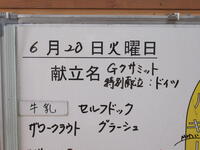 6月28日火曜日
献立名 Gクサミット
特別献立:ドイツ
牛乳 セルフドック
ザワークラウト グラーシュ